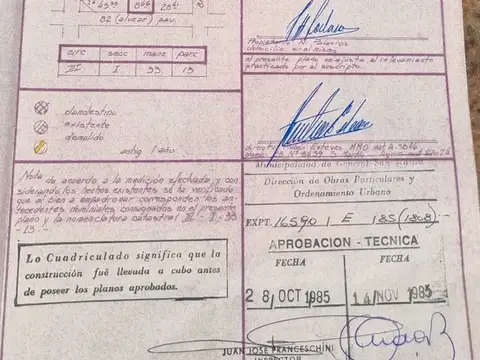 82 (alvear) pav.
circ secc manz parc
III I 33 13
clandestino
existente
demolido
antig 1 año
Nota: de acuerdo a la medición efectuada y con-
siderando los hechos existentes se ha verificado
que el bien a empadronar corresponden los an-
tecedentes dominiales consignados en el presente
plano y la nomenclatura catastral III-I-33
-13-
Lo Cuadriculado significa que la
construcción fué llevada a cabo antes
de poseer los planos aprobados.
Propietario N. Palacios
domicilio en el mismo
el presente plano se ajusta al relevamiento
practicado por el suscripto.
Municipalidad de General San Martín
Dirección de Obras Particulares y
Ordenamiento Urbano
EXPT. 16590 I E 185 (1868)
APROBACION - TECNICA
FECHA FECHA
28 OCT 1985 14 NOV 1985
JUAN JOSE FRANCESCHINI
INSPECTOR